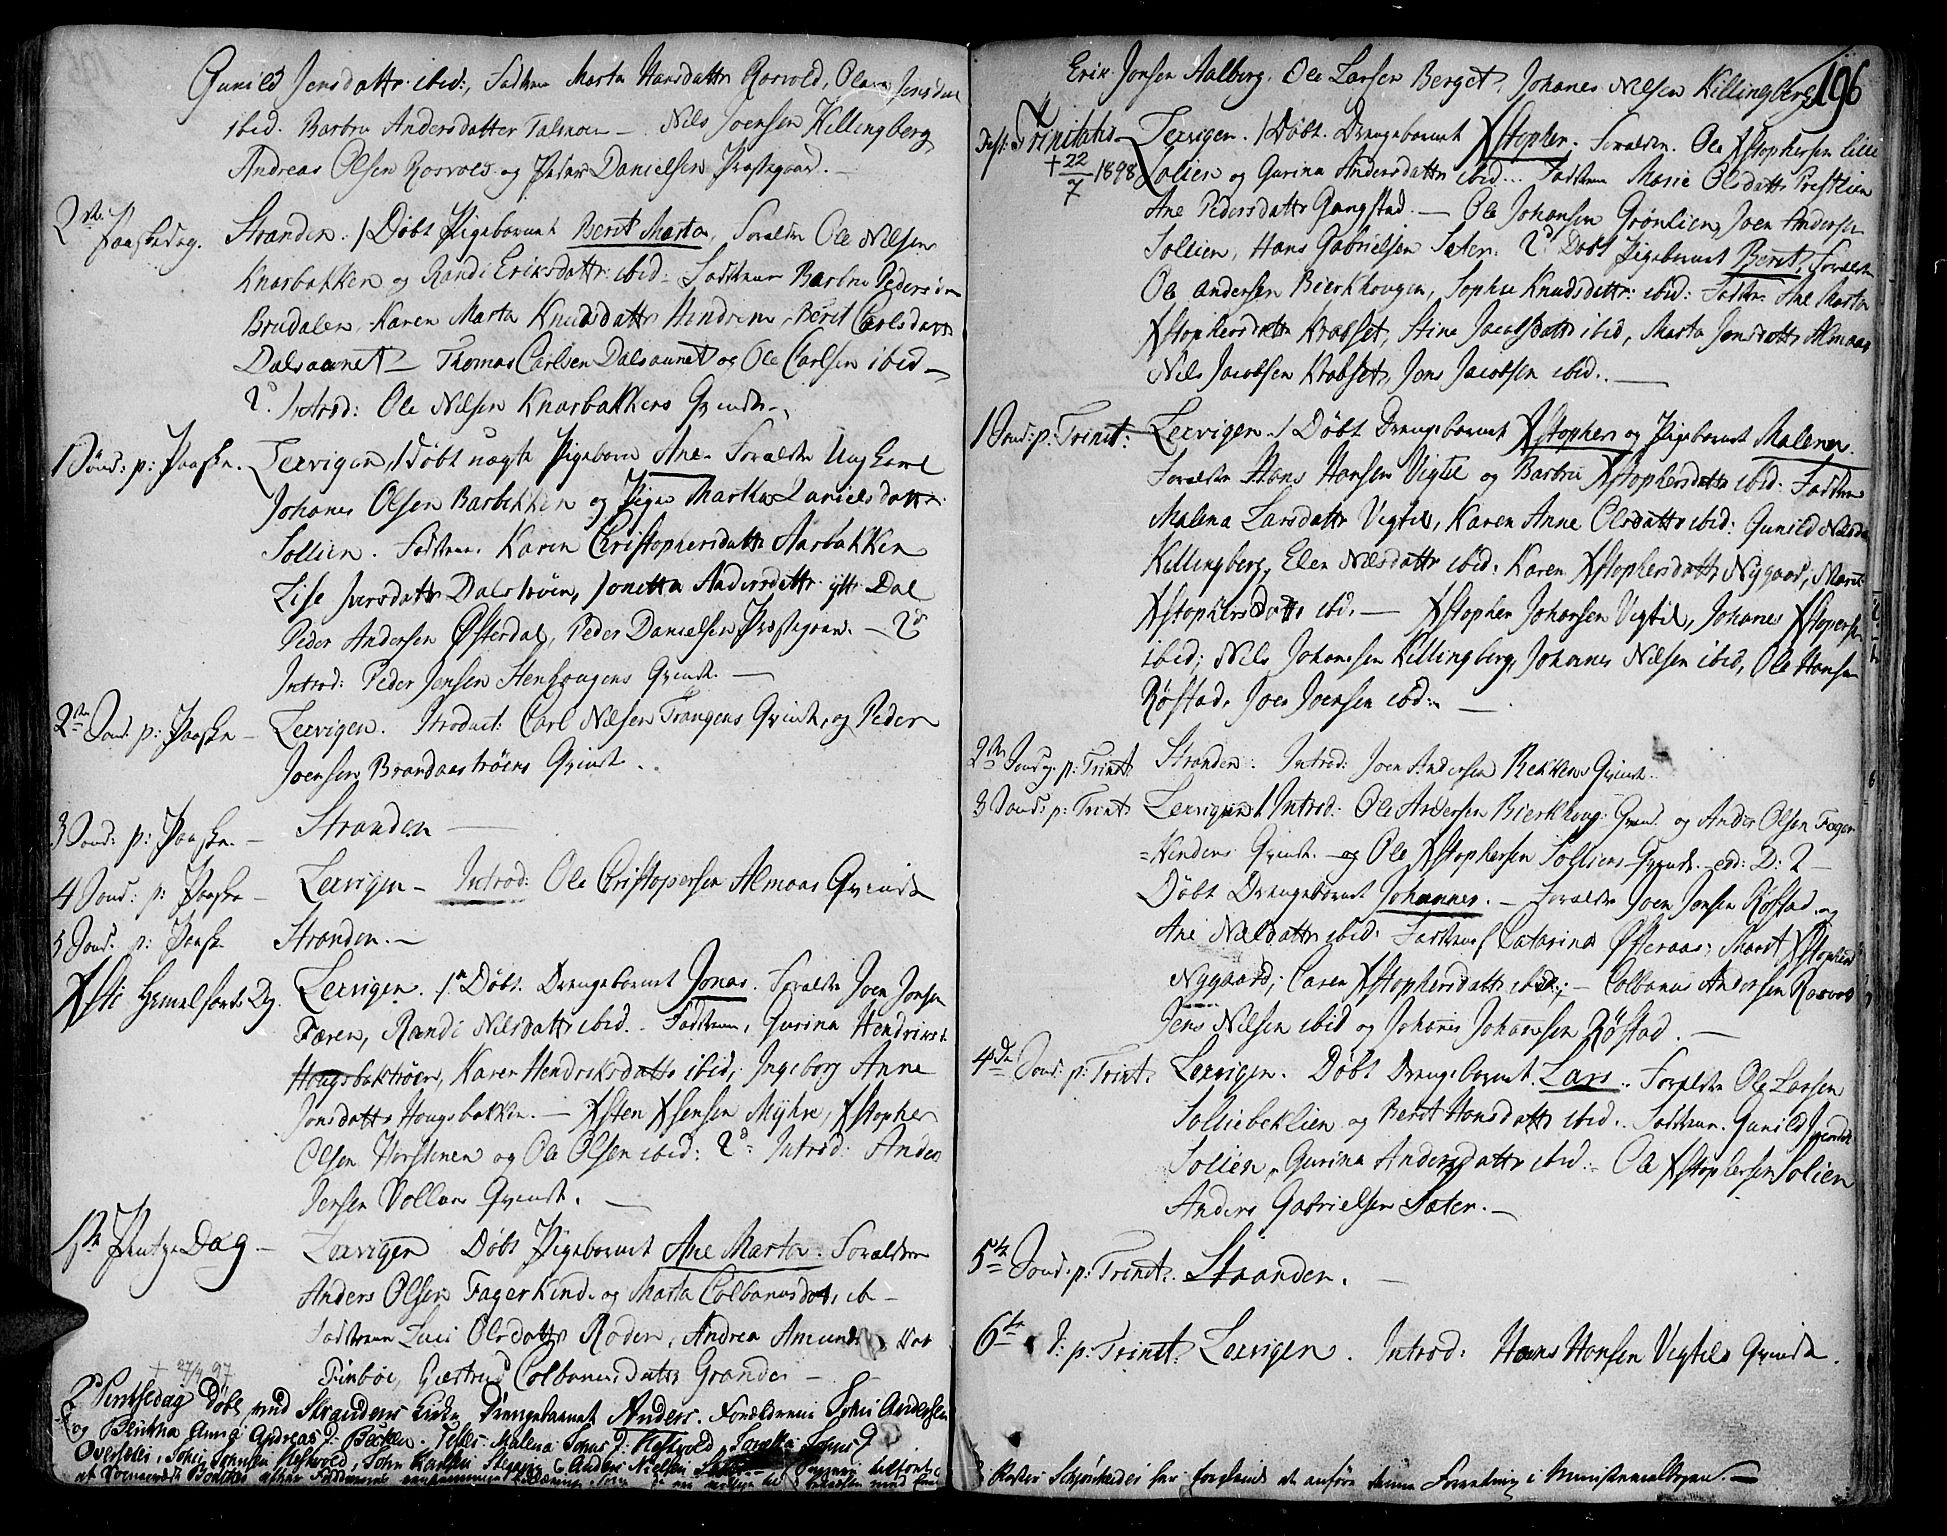 Gunild Jensdattr ibid:, Faddere Marta Hansdattr Rosvold, Olava Jensdatt
ibid. Barbru Andersdatter Talmoen – Nils Joensen Killingberg
Andreas Olsen Rosvold og Peder Danielsen Præstegaard. –
2den Paaskedag. Stranden. / Døbt Pigebarnet Berit Marta, Forældre Ole Nilsen
Knarbakken og Randi Eriksdattr ibid. Faddere Barbru Pedersdn
Brudalen, Karen Marta Knudsdattr Hindrem, Berit Carlsdattr
Dalsaunet – Thomas Carlsen Dalsaunet og Ole Carlsen ibid –
2d. Introd: Ole Nilsen Knarbakkens Qvinde –
1 Sønd: p: Paaske. Lexvigen, 1 Døbt uægte Pigebarn Ane. Forældre Ung Karl
Johanes Olsen Barbekken og Pige Martha Danielsdattr
Sollien. Faddere. Karen Christophersdattr Aarbakken
Lise Iversdattr Dalstrøen, Jonetta Andersdattr yttr Dal
Peder Andersen Østerdal, Peder Danielsen Præstegaard. – 2d
Introd: Peder Jensen Stenhougens Qvinde. –
2den Sønd. p: Paaske – Lexvigen. Introduct: Carl Nilsen Trangens Qvinde, og Peder
Joensen Brandaastrøens Qvinde.
3 Sønd: p: Paaske. – Stranden –
4 Sønd: p: Paaske – Lexvigen – Introd: Ole Christopersen Almaas Qvinde
5 Sønd. p: Paaske Stranden. –
Xsti Hemelfarts Dg. Lexvigen. 1. Døbt. Drengebarnet Jonas. Forældre Joen Jonsen
Færen, Randi Nilsdattr ibid. Faddere, Gurina Hendriksd.
Hougsbaktrøen, Karen Hendriksdattr ibid, Ingeborg Anne
Jonsdattr Hougsbakken. – Xsten Xsensen Myhre, Xstopher
Olsen Horstenen og Ole Olsen ibid: 2d Introd: Anders
Jensen Vollans Qvinde. –
1ste Pintze Dag – Lexvigen Døbt Pigebarnet Ane Marta. Forældre
Anders Olsen Fagerkind og Marta Colbanusdat, ib –
Faddere Luci Olsdattr Roden, Andrea Amunds Dat
Finboe, Giertrud Colbanusdattr Grande –
+ 27/4 97
2d Pintsedag Døbt ved Strandens Kirke Drengebarnet Anders. Forældrene Johis Andersen
og Beritha Anna Andreas D: Becken. Test: Malena Johns D: Hestvold, Johns D
Oversæli, Johis Johnsen Hestvold, John Anders Nielsen
196
Erik Jonsen Aalberg. Ole Larsen Berget, Johanes Nilsen Killingberg
Fest: Trinitatis Lexvigen. / Døbt. Drengebarnet Xstopher. Forældre. Ole Xstophersen lille
+ 22/7 1898 Solien og Gurina Andersdattr ibid... Faddere Marie Olsdattr Prestlien
Ane Pedersdattr Gangstad. – Ole Johansen Grønlien, Joen Andersen
Sollien, Hans Gabrielsen Sæter. 2d Døbt Pigebarnet Berit, Forældre
Ole Andersen Bierkhougen, Sophie Knudsdattr: ibid: Faddr. Ane Marta
Xstophersdattr Krabset, Stina Jacobsdattr ibid, Marta Jonsdattr Almaas
Nils Jacobsen Krabset, Jens Jacobsen ibid. –
1 Sønd: p: Trinit: Lexvigen. / Døbt Drengebarnet Xstopher og Pigebarnet Malena.
Forældre Hans Hansen Vigtil og Barbru Xstophersdattr ibid. Faddere
Malena Larsdattr Vigtil, Karen Anne Olsdattr ibid: Gunild Nilsda
Killingberg, Elen Nilsdattr ibid. Karen Xstophersdattr Nygaard, Marit
Xstophersdattr ibd. – Xstopher Johansen Vigtil, Johanes Xstopersen
ibid; Nils Johansen Killingberg, Johannes Nilsen ibid, Ole Hansen
Røstad, Joen Joensen ibd. –
2den Sønd. p: Trinit. Stranden. Introd: Joen Andersen Rekkens Qvinde.
3 Sønd: p: Trinit: Lexvigen 1 Introd: Ole Andersen Bierkhoug: Qvind. og Anders Olsen Fager-
=kindens Qvinde. – og Ole Xstophersen Solliens Qvinde – 2 –
Døbt Drengebarnet Johannes. – Forældre Joen Jonsen Røstad og
Ane Nilsdattr ibid. Faddere Catarina Østeraas, Marit Xstophersd
Nygaard; Caren Xstophersdattr ibid; – Colbanus Andersen Rosvold
Jens Nilsen ibid og Johanis Johansen Røstad. –
4de Sønd: p: Trinit. Lexvigen. Døbt Drengebarnet Lars. Forældre Ole Larsen
Solliebeklien og Berit Hansdattr ibid. Faddere. Gunild
Solien, Gurina Andersdattr ibid. Ole Xstophersen Solien
Anders Gabrielsen Sæter. –
5te Sønd. p: Trinit. Stranden. –
6te S: p: Trinit. Lexvigen. Introd: Hans Hansen Vigtils Qvinde.
at anføre denne Forretning i Ministerialbogen. –